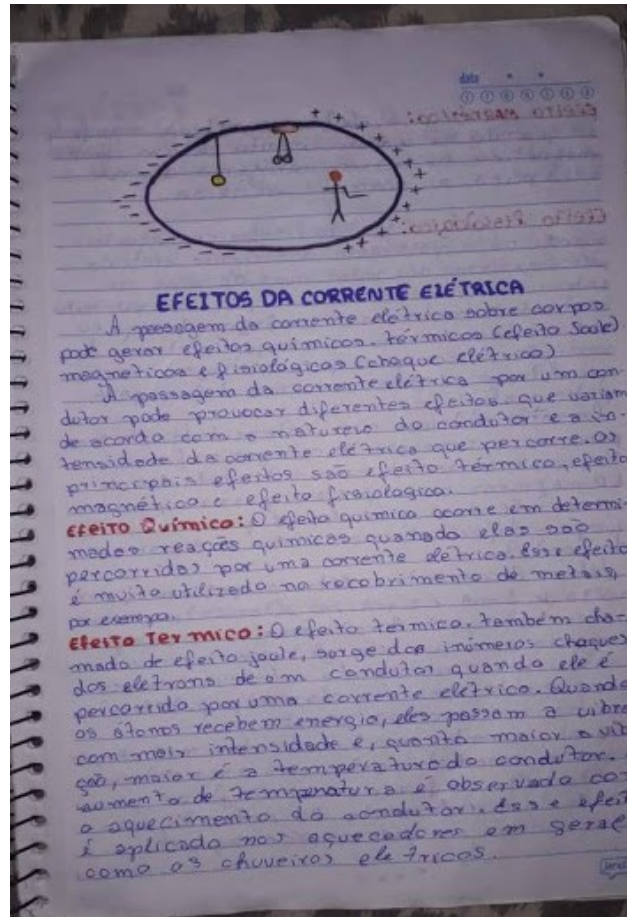 data
EFEITOS DA CORRENTE ELÉTRICA
A passagem da corrente elétrica sobre corpos
pode gerar efeitos químicos, térmicos (efeito Joule)
magnéticos e fisiológicos (choque elétrico)
A passagem da corrente elétrica por um con-
dutor pode provocar diferentes efeitos, que variam
de acordo com a natureza do condutor e a in-
tensidade da corrente elétrica que percorre. os
principais efeitos são efeito térmico, efeito
magnético e efeito fisiologico.
Efeito Químico: O efeito químico ocorre em determi-
nadas reações químicas quando elas são
percorridas por uma corrente elétrica. Esse efeito
é muito utilizado no recobrimento de metais,
por exempo.
Efeito Termico: O efeito termico, também cha-
mado de efeito joule, surge dos inúmeros choques
dos eletrons de um condutor quando ele é
percorrido por uma corrente eletrica. Quando
os átomos recebem energia, eles passam a vibra
com mais intensidade e, quanto maior a vib
ção, maior é a temperatura do condutor.
aumento de temperatura é observado co
o aquecimento do condutor. Esse efeit
é aplicado nos aquecedores em geral
como os chuveiros eletricos.